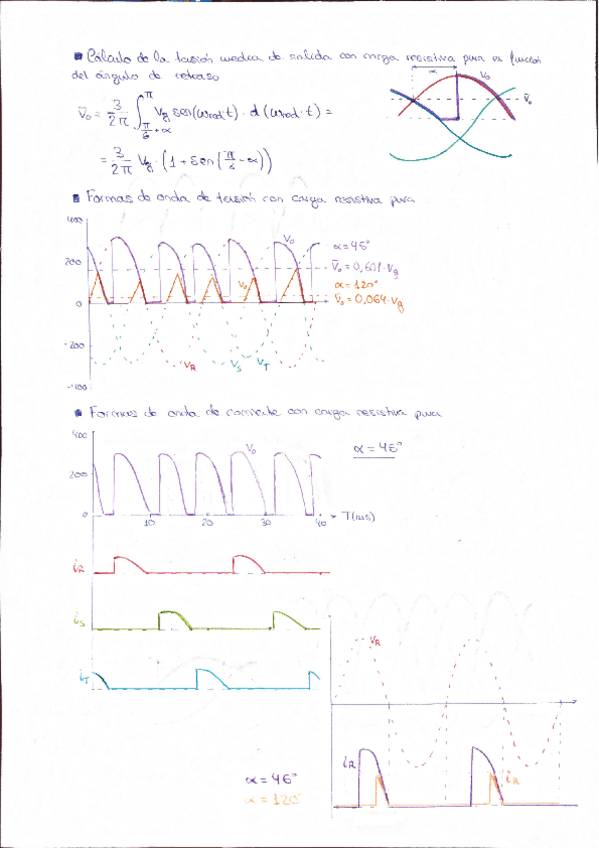 Cálculo de la tensión media de salida con carga resistiva pura en función
del ángulo de retraso
α V₀
V̄₀
V̄₀ = 3/2π ∫_{π/6+α}^{π} Vg sen(ωred·t) · d(ωred·t) =
= 3/2π Vg · (1 + sen(π/6 - α))
Formas de onda de tensión con carga resistiva pura
400
200
0
-200
-400
V₀
V₀
α = 45°
V̄₀ = 0,601·Vg
α = 120°
V̄₀ = 0,064·Vg
VR VS VT
Formas de onda de corriente con carga resistiva pura
400
200
0
V₀
α = 45°
10 20 30 40 T(ms)
iR
iS
iT
VR
iR iR
α = 45°
α = 120°